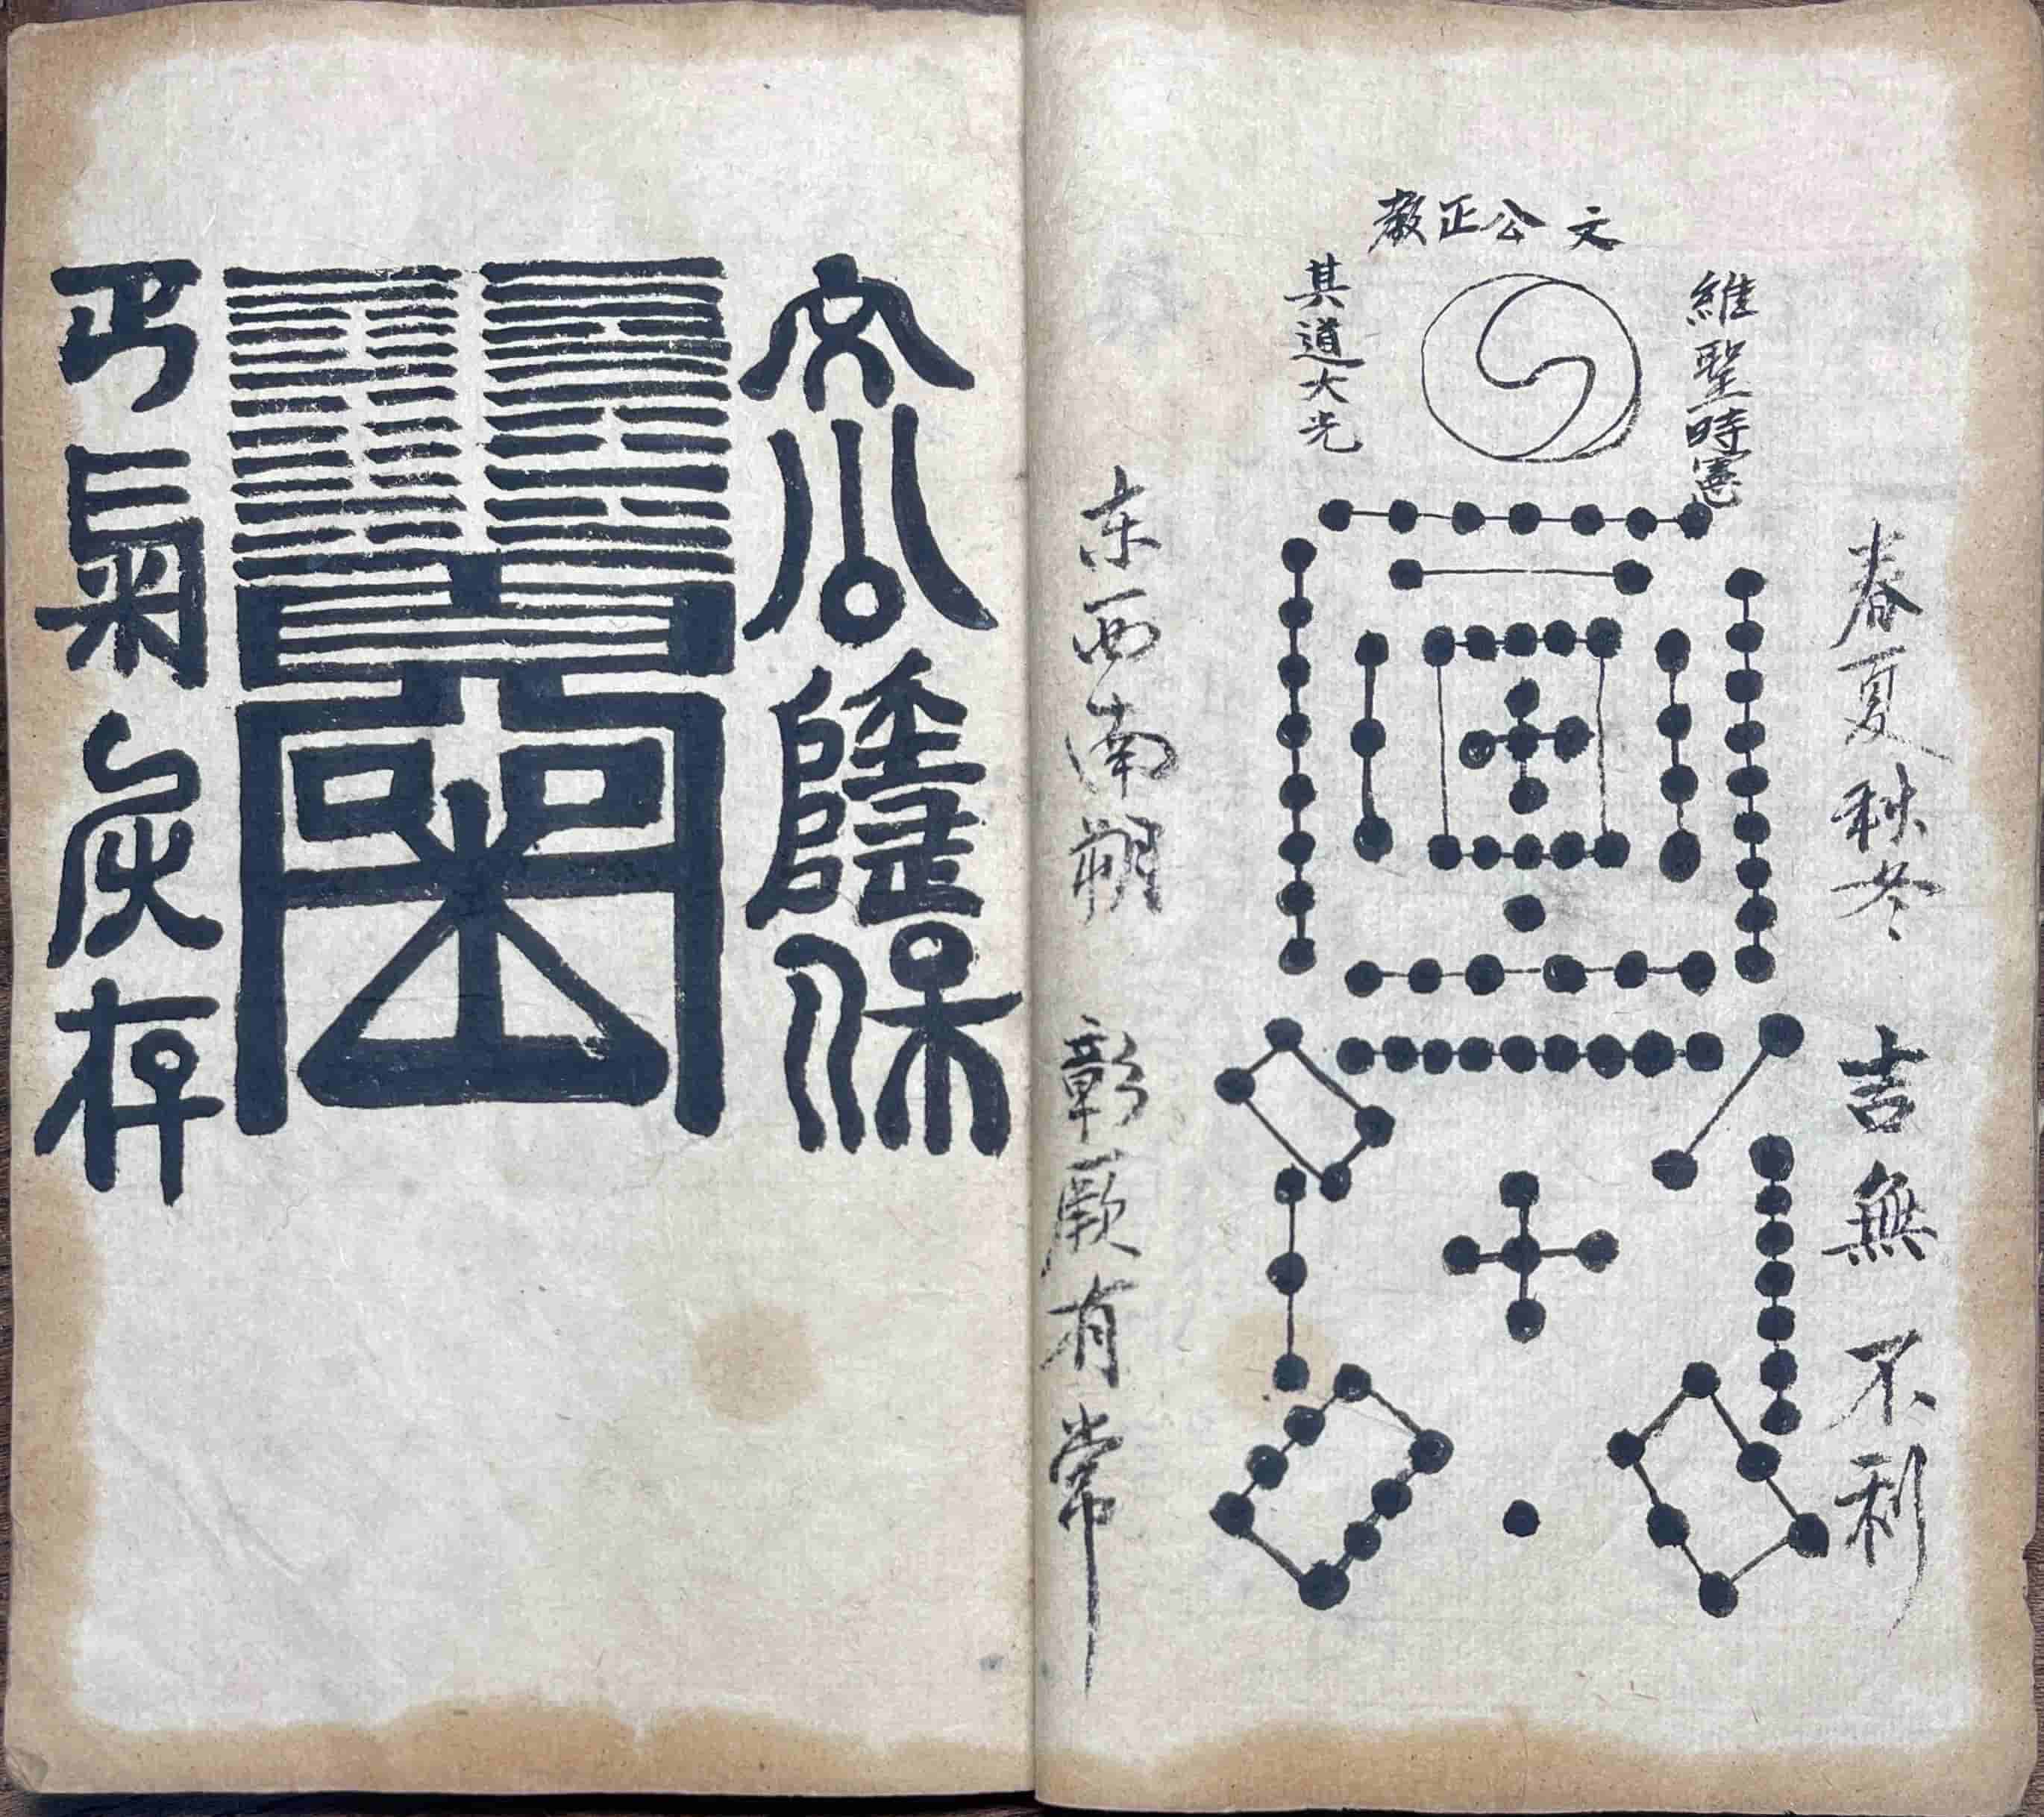 文公正教
維聖時憲
其道大光
春夏秋冬 吉無不利
东西南朔 彰厥有常
文公
保
氣
存